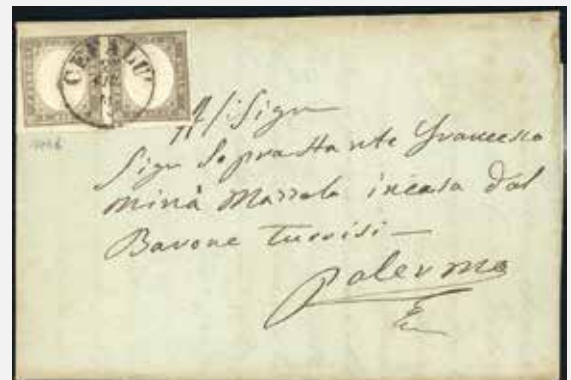 CEFALU'
All Sign
Sign Soprastante Francesco
Minà Mazzola in casa Dal
Barone Turrisi —
Palermo